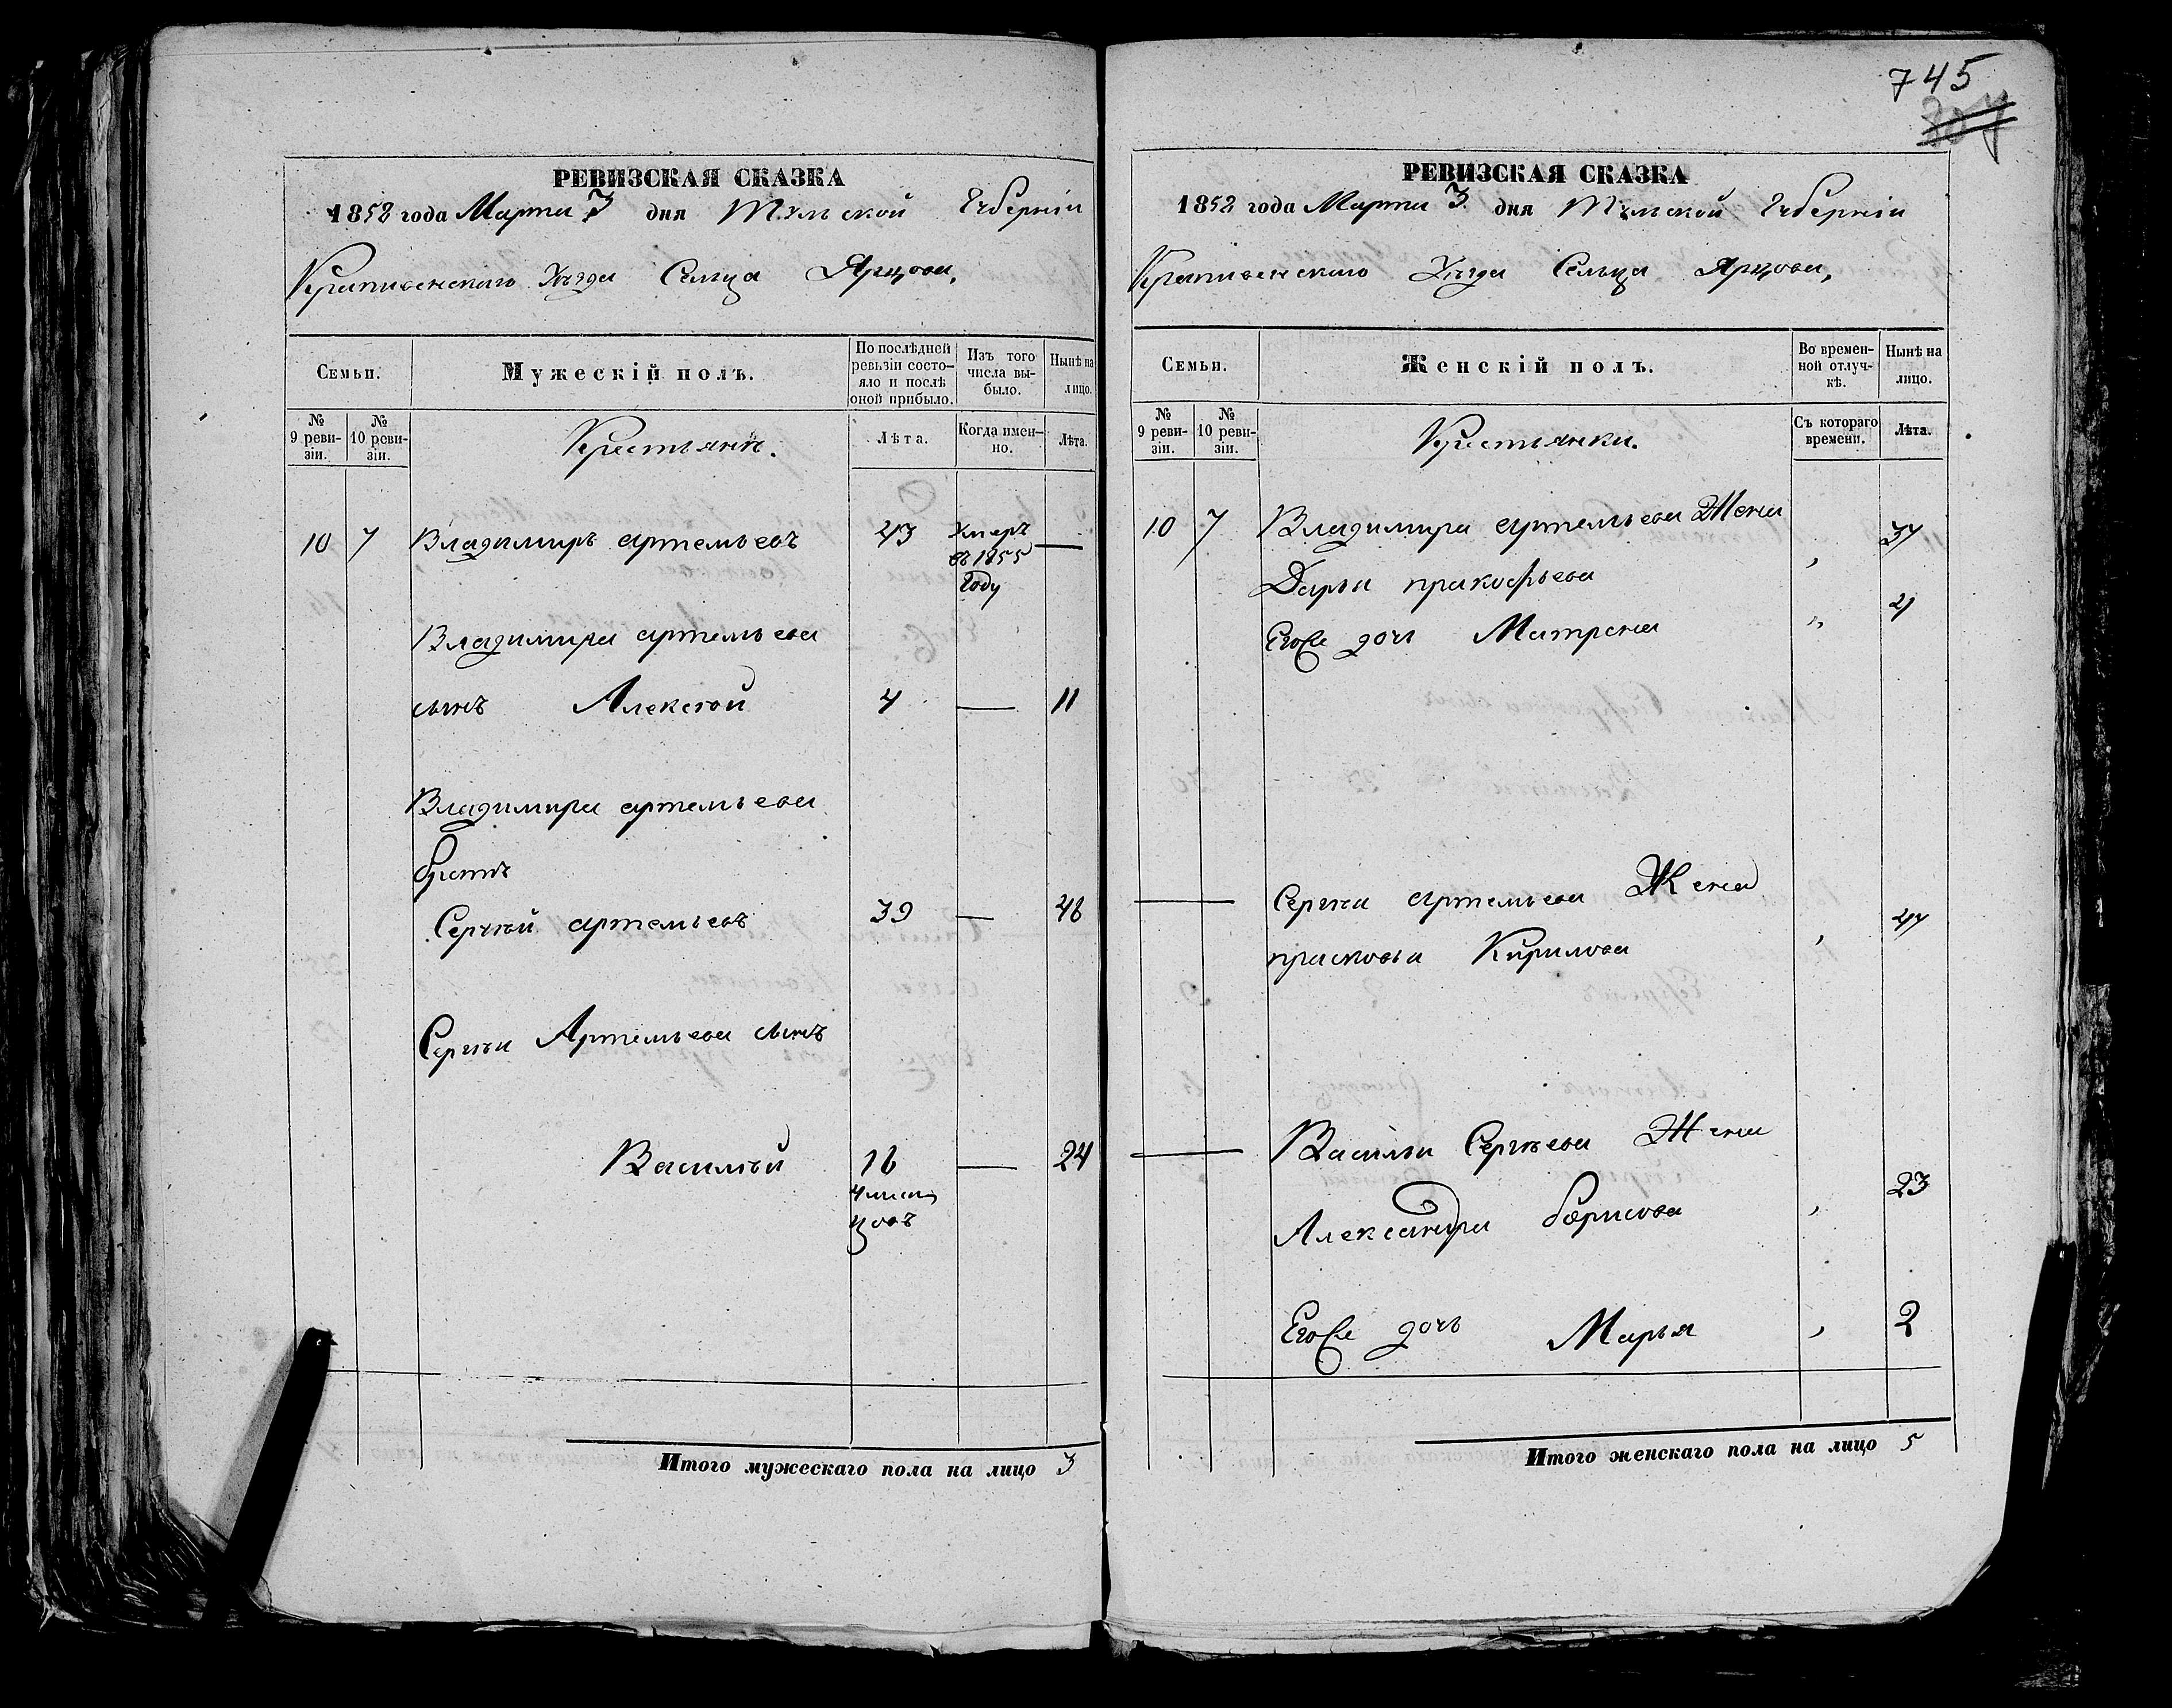 РЕВИЗСКАЯ СКАЗКА
1858 года Марта 3 дня Тульской Губерніи
Крапивенскаго Уѣзда Сельца Ярцова,
Семьи.
Мужескій полъ.
По послѣдней ревизіи состояло и послѣ оной прибыло.
Изъ того числа выбыло.
Нынѣ на лицо.
№ 9 ревизіи.
№ 10 ревизіи.
Крестьяне.
Лѣта.
Когда именно.
Лѣта.
10 7 Владимиръ артемьевъ 43 Умеръ въ 1855 Году —
Владимира артемьева
сынъ Алексѣй 4 — 11
Владимира артемьева
братъ
Сергѣй артемьевъ 39 — 46
Сергѣя Артемьева сынъ
Василий 16 — 24
Итого мужескаго пола на лицо 3
745
РЕВИЗСКАЯ СКАЗКА
1858 года Марта 3 дня Тульской Губерніи
Крапивенскаго Уѣзда Сельца Ярцова,
Семьи.
Женскій полъ.
Во временной отлучкѣ.
Нынѣ на лицо.
№ 9 ревизіи.
№ 10 ревизіи.
Крестьянки.
Съ котораго времени.
Лѣта.
10 7 Владимира артемьева Жена
Дарья пракофьева 37
Егоже дочь Матрена 21
— Сергѣя артемьева Жена
прасковья Кирилова 47
— Василья Сергѣева Жена
Александра борисова 23
Егоже дочь Марья 2
Итого женскаго пола на лицо 5